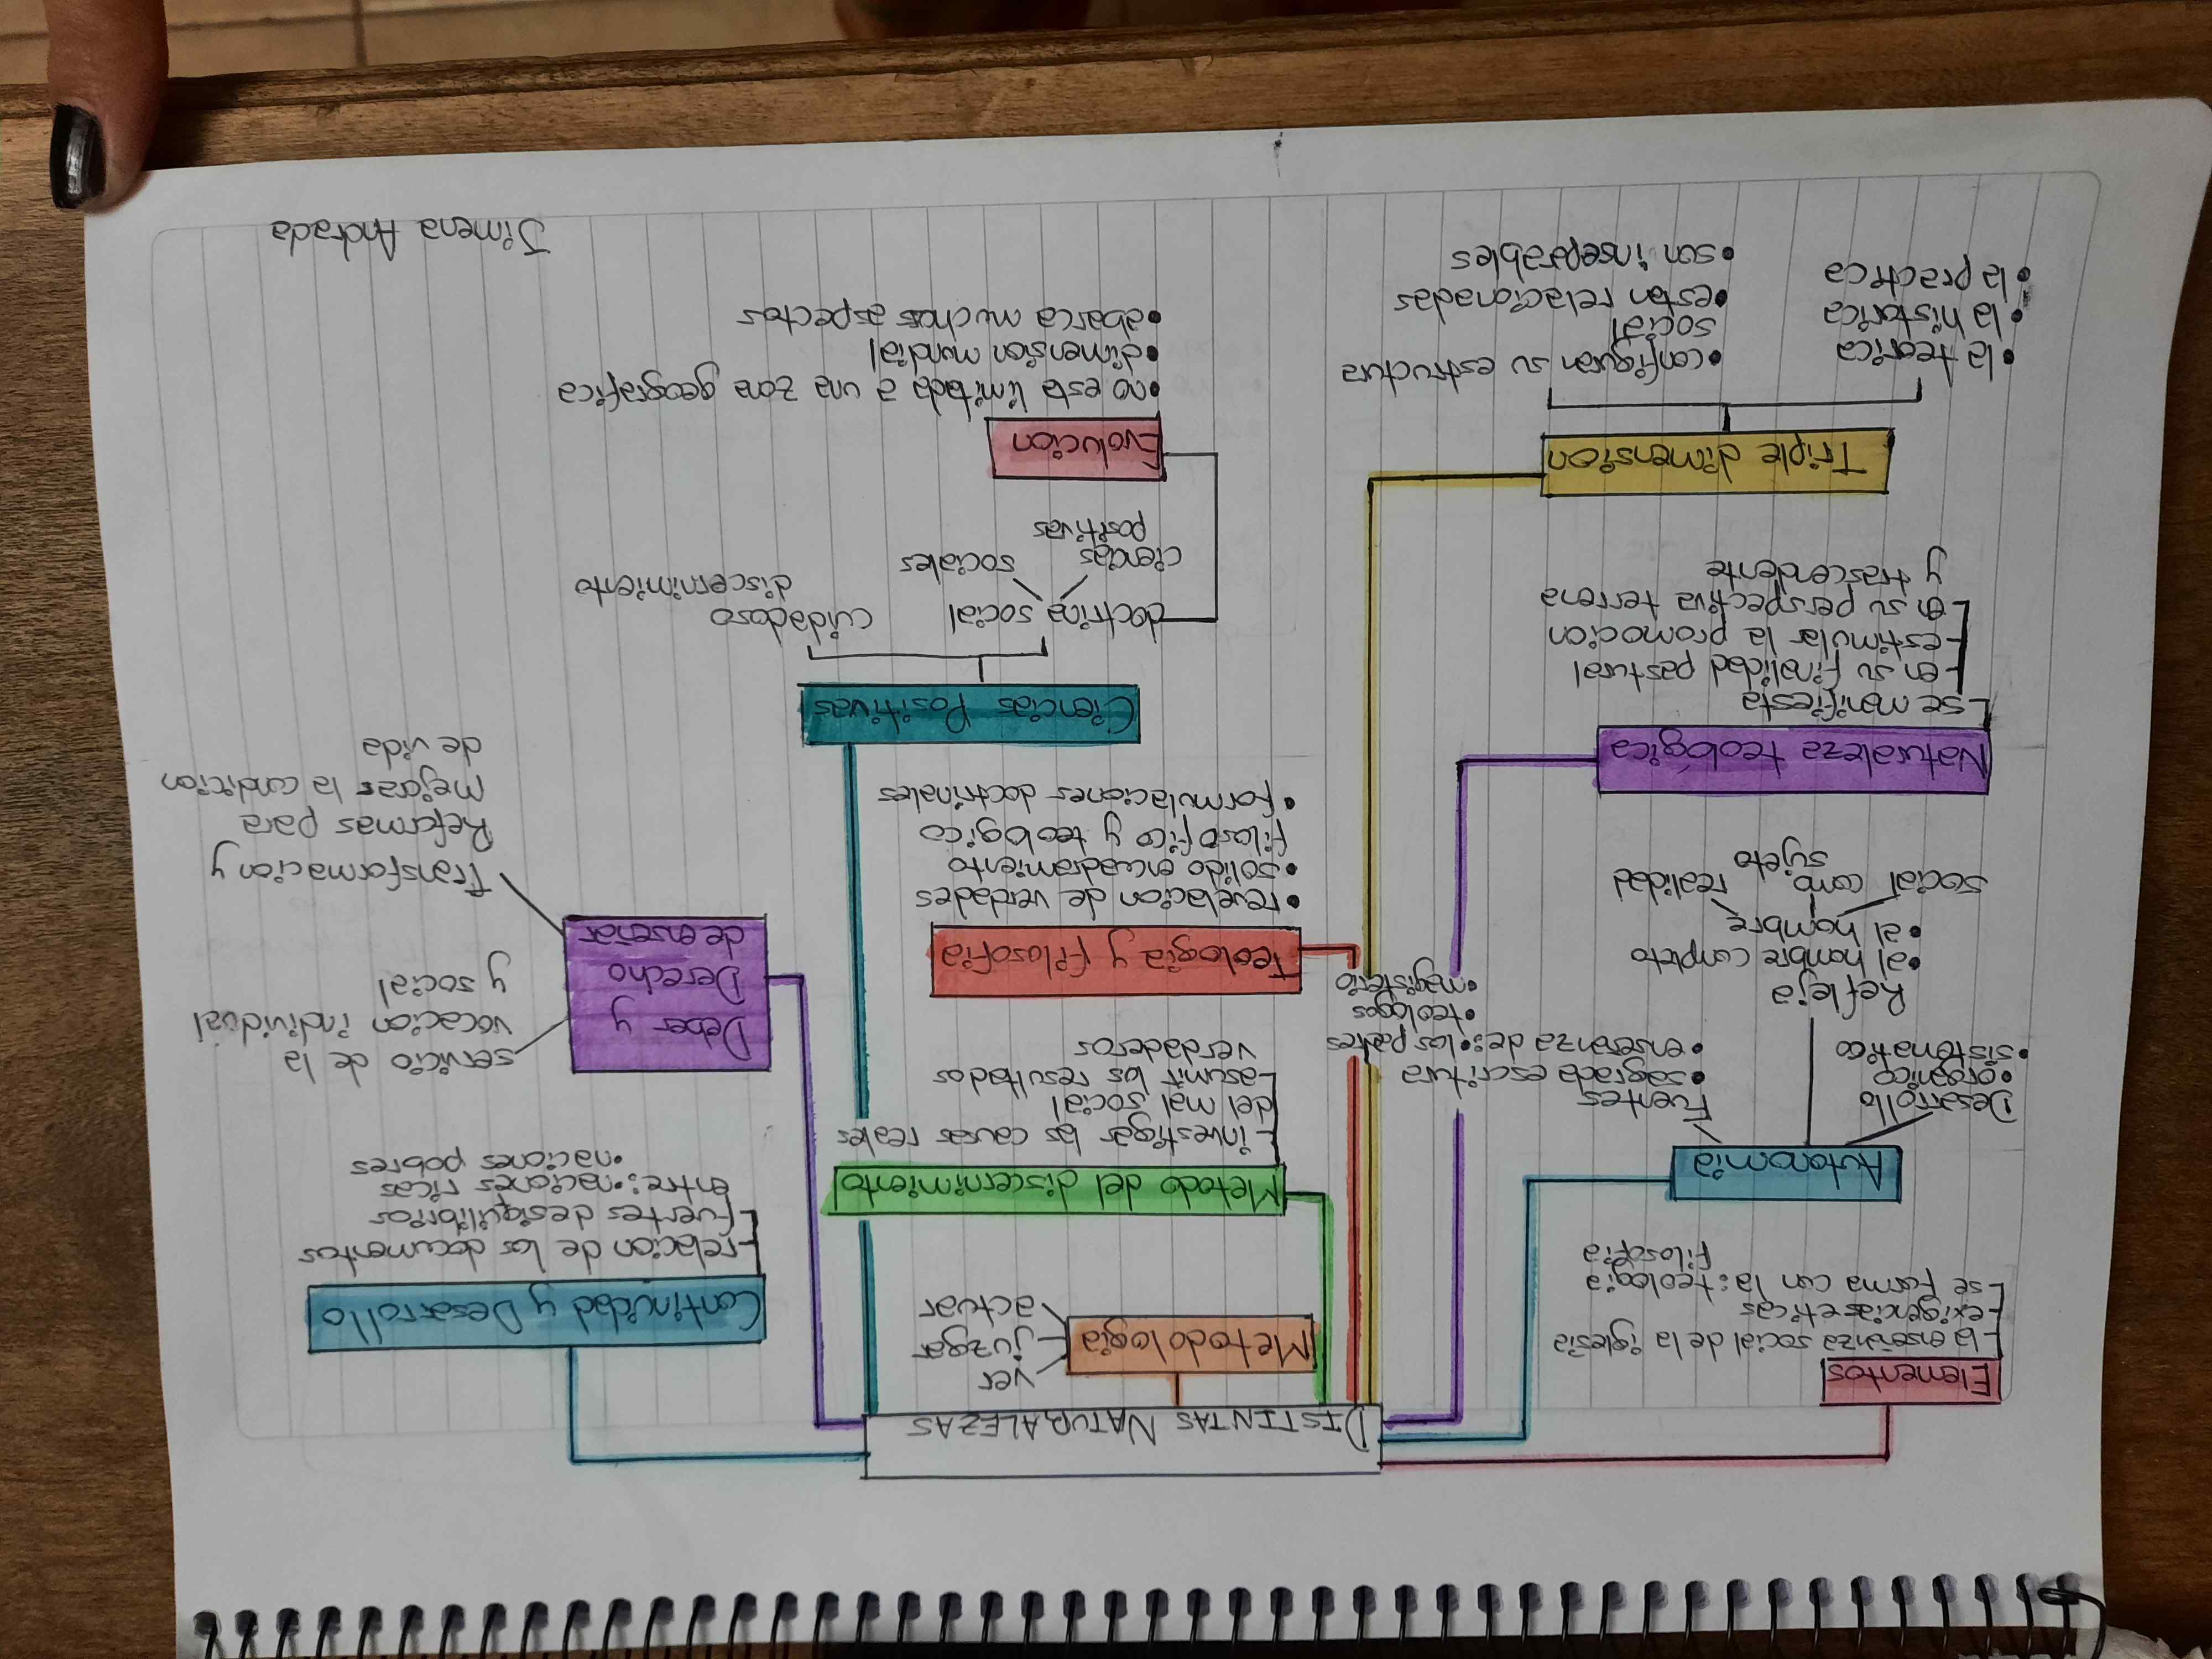 DISTINTAS NATURALEZAS
Elementos
la enseñanza social de la iglesia
exigencias eticas
se forma con la: teologia
filosofia
Autonomia
Desarrollo
• organico
• sistematico
Refleja
• al hombre completo
• al hombre
social como realidad
sujeto
Fuentes
• sagrada escritura
• enseñanza de: • los padres
• teologos
• magisterio
Naturaleza teologica
se manifiesta
en su finalidad pastural
estimular la promocion
en su perspectiva terrena
y trascendente
Triple dimension
• la teorica
• la historica
• la practica
• configuran su estructura
social
• estan relacionadas
• son inseparables
Metodologia
ver
juzgar
actuar
Metodo del discernimiento
- investigar las causas reales
del mal social
- asumir los resultados
verdaderos
Teologia y filosofia
• revelacion de verdades
• solido encuadramiento
filosofico y teologico
• formulaciones doctrinales
Ciencias Positivas
doctrina social
ciencias sociales
positivas
cuidadoso
discernimiento
Evolucion
• no esta limitada a una zona geografica
• dimension mundial
• abarca muchos aspectos
Continuidad y Desarrollo
- relacion de los documentos
- fuertes desiquilibrios
entre: • naciones ricas
• naciones pobres
Deber y
Derecho
de enseñar
servicio de la
vocacion individual
y social
transformacion y
Reformas para
mejorar la condicion
de vida
Jimena Andrada